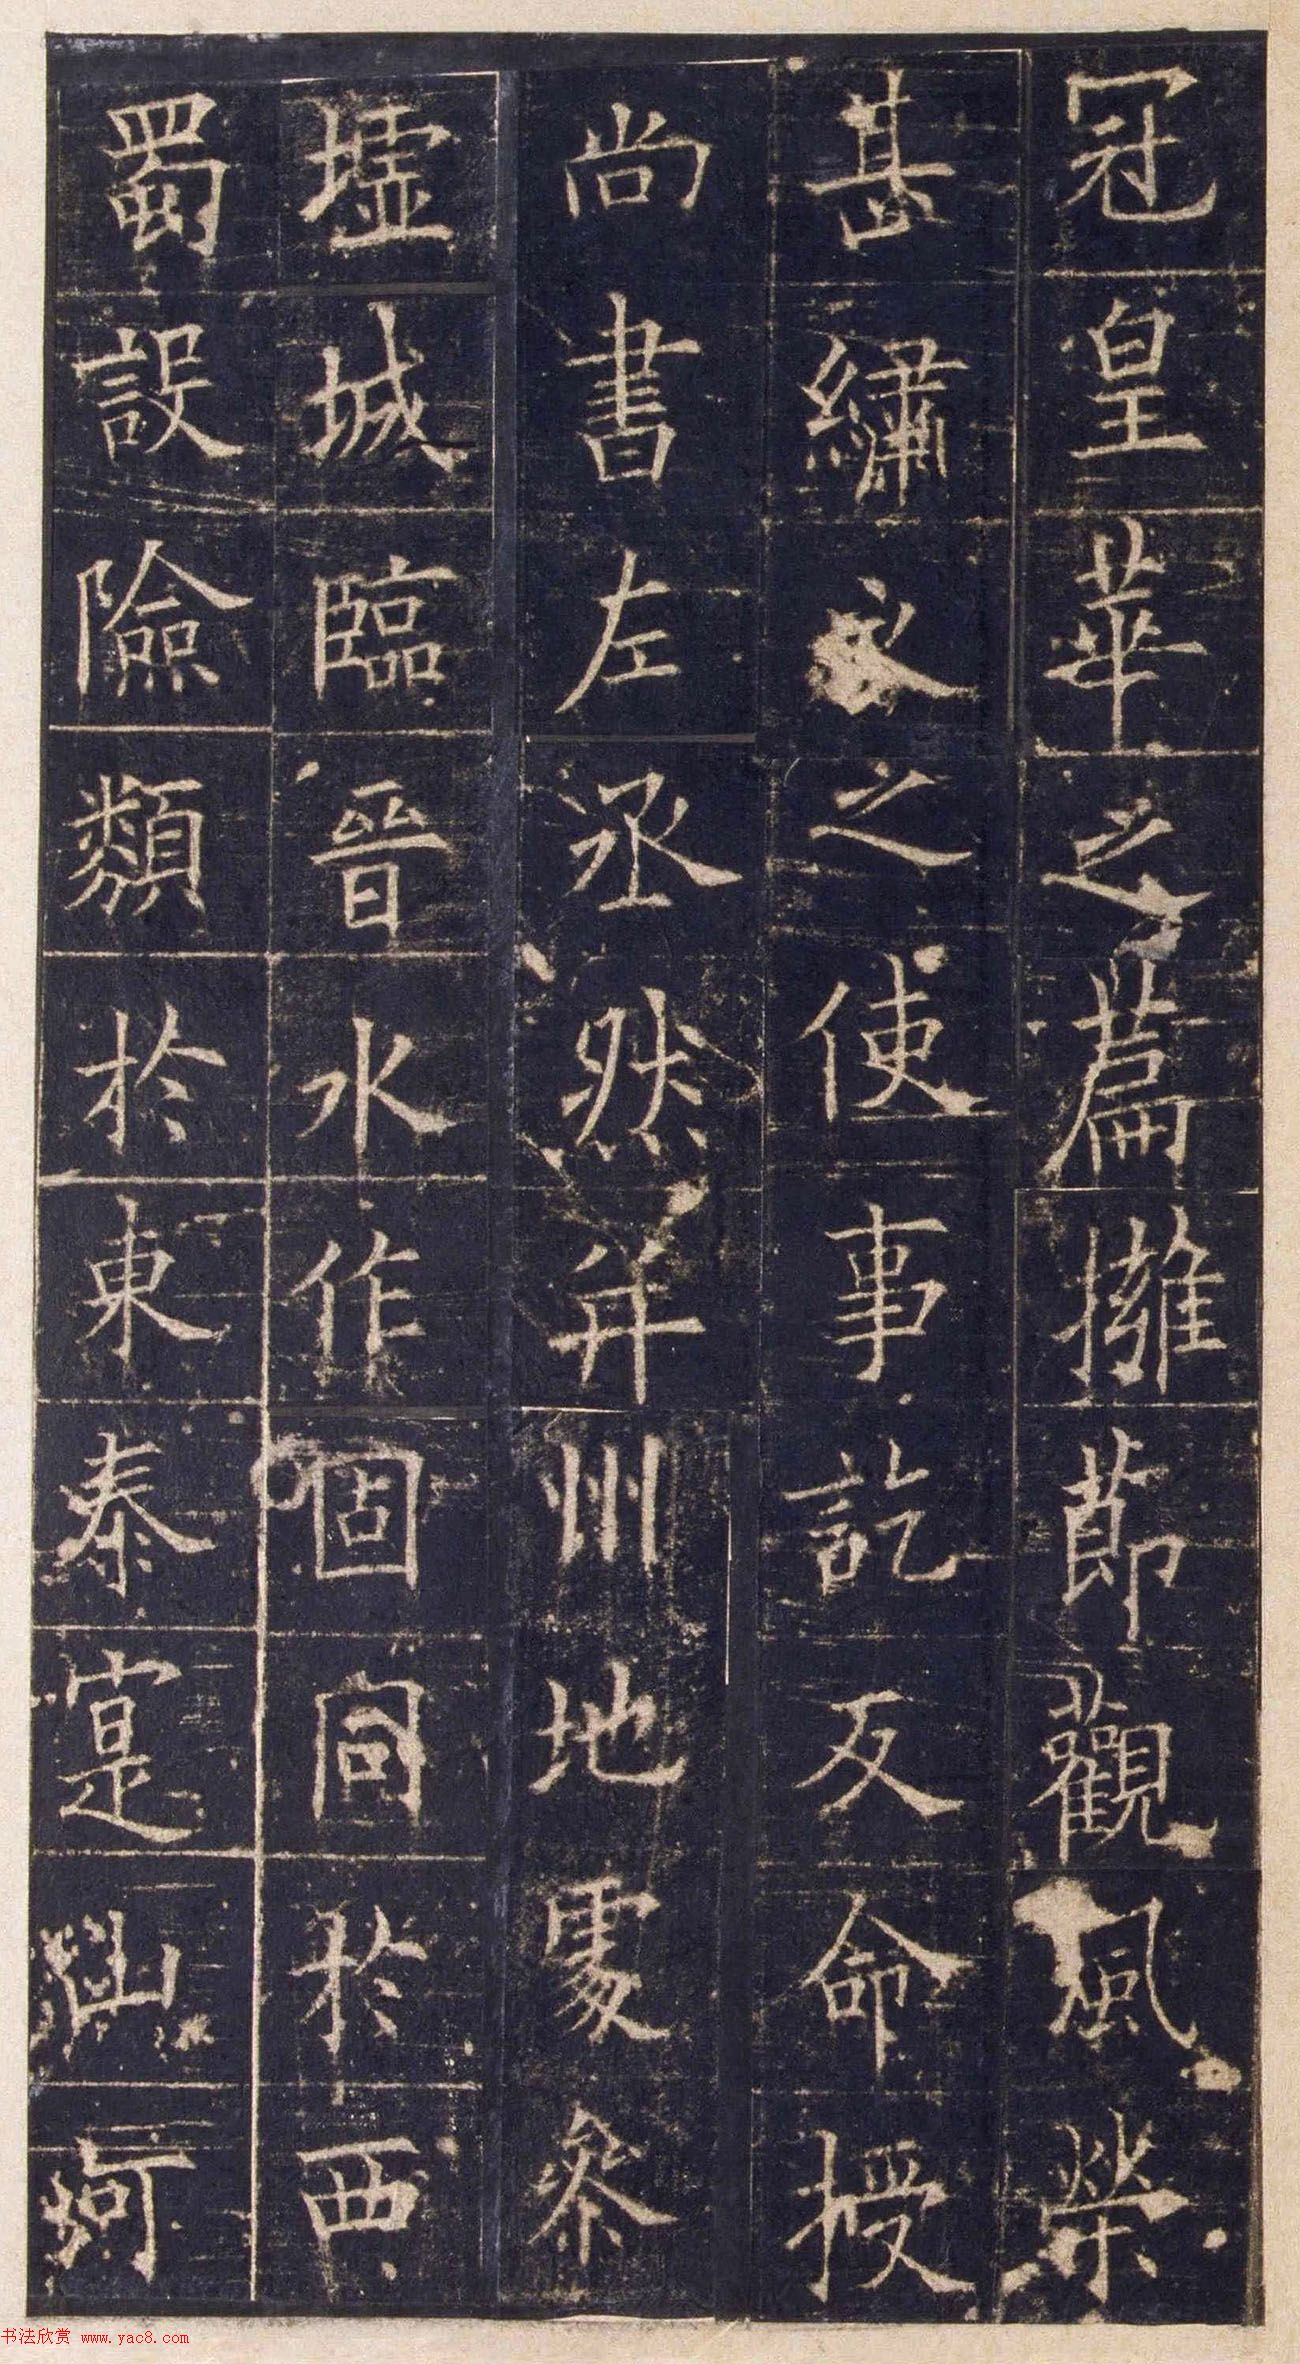 冠皇華之篇擁節觀風榮
甚繡衣之使事訖反命授
尚書左丞然并州地處參
墟城臨晉水作固同於西
蜀設險類於東秦寔山河
书法欣赏 www.yac8.com